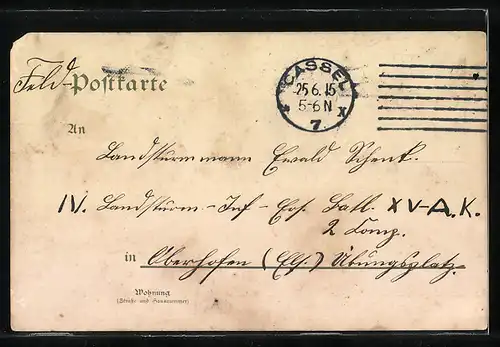 Feld-Postkarte
CASSEL
25.6.15
5-6N
* 7. X
An
Landsturmmann Ewald Schenk.
IV. Landsturm-Inf-Ers. Batl. XV-A.K.
2 Komp.
in Oberhofen (Els.) Übungsplatz.
Wohnung
(Straße und Hausnummer)